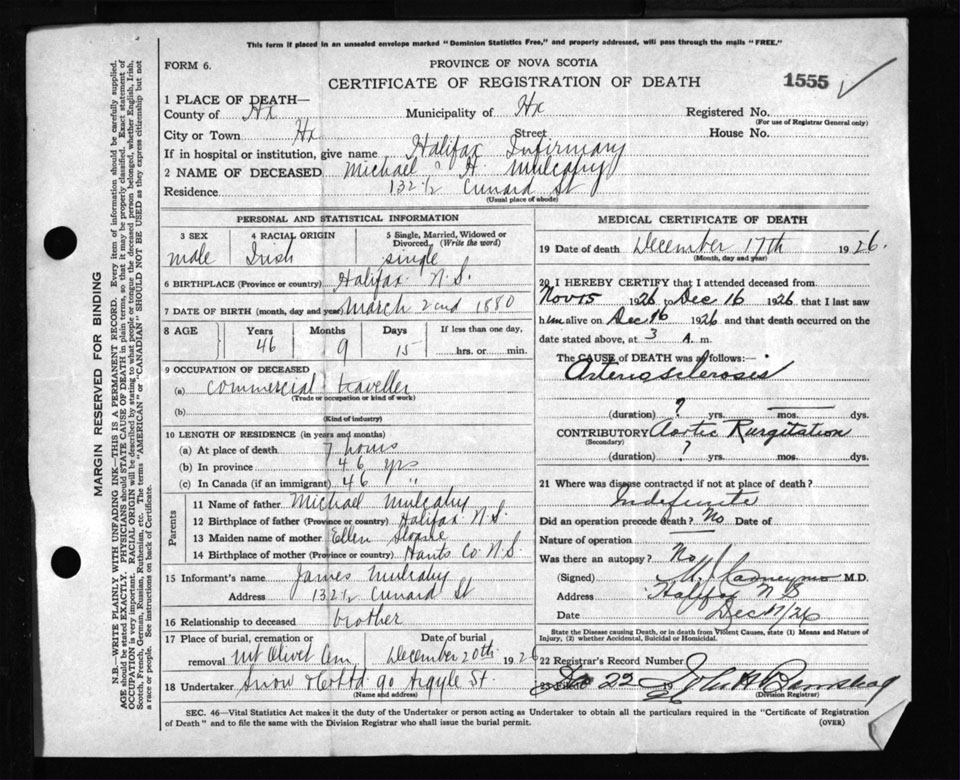 This form if placed in an unsealed envelope marked "Dominion Statistics Free," and properly addressed, will pass through the mails "FREE."
FORM 6.
PROVINCE OF NOVA SCOTIA
CERTIFICATE OF REGISTRATION OF DEATH
1555
MARGIN RESERVED FOR BINDING
N.B.—WRITE PLAINLY WITH UNFADING INK—THIS IS A PERMANENT RECORD. Every item of information should be carefully supplied.
AGE should be stated EXACTLY. PHYSICIANS should STATE CAUSE OF DEATH in plain terms, so that it may be properly classified. Exact statement of
OCCUPATION is very important. RACIAL ORIGIN will be described by stating to what people or tongue the deceased person belonged, whether English, Irish,
Scotch, French, German, Russian, Ruthenian, etc. The terms "AMERICAN" or "CANADIAN" SHOULD NOT BE USED as they express citizenship but not
a race or people. See instructions on back of Certificate.
1 PLACE OF DEATH—
County of Hx Municipality of Hx Registered No.
(For use of Registrar General only)
City or Town Hx Street House No.
If in hospital or institution, give name Halifax Infirmary
2 NAME OF DECEASED Michael H Mulcahy
Residence 132 1/2 Cunard St
(Usual place of abode)
PERSONAL AND STATISTICAL INFORMATION
3 SEX male
4 RACIAL ORIGIN Irish
5 Single, Married, Widowed or Divorced (Write the word) single
6 BIRTHPLACE (Province or country) Halifax N.S.
7 DATE OF BIRTH (month, day and year) March 2nd 1880
8 AGE Years 46 Months 9 Days 15 If less than one day, hrs. or min.
9 OCCUPATION OF DECEASED
(a) Commercial traveller
(Trade or occupation or kind of work)
(b)
(Kind of industry)
10 LENGTH OF RESIDENCE (in years and months)
(a) At place of death 7 hours
(b) In province 46 yrs
(c) In Canada (if an immigrant) 46 "
Parents
11 Name of father Michael Mulcahy
12 Birthplace of father (Province or country) Halifax N.S.
13 Maiden name of mother Ellen Sloane
14 Birthplace of mother (Province or country) Hants Co N.S.
15 Informant's name James Mulcahy
Address 132 1/2 Cunard St
16 Relationship to deceased brother
17 Place of burial, cremation or removal Mt Olivet Cem Date of burial December 20th 1926
18 Undertaker Snow & Co Ltd 90 Argyle St.
(Name and address)
MEDICAL CERTIFICATE OF DEATH
19 Date of death December 17th 1926.
(Month, day and year)
20 I HEREBY CERTIFY that I attended deceased from
Nov 15 1926 to Dec 16 1926 that I last saw
him alive on Dec 16 1926 and that death occurred on the
date stated above, at 3 A. m.
The CAUSE of DEATH was as follows:
Arteriosclerosis
(duration) ? yrs. mos. dys.
CONTRIBUTORY Aortic Rurgitation
(Secondary)
(duration) ? yrs. mos. dys.
21 Where was disease contracted if not at place of death?
Indefinite
Did an operation precede death? No Date of
Nature of operation —
Was there an autopsy? No
(Signed) M.D.
Address Halifax N S
Date Dec 17/26
State the Disease causing Death, or in death from Violent Causes, state (1) Means and Nature of
Injury, (2) whether Accidental, Suicidal or Homicidal.
22 Registrar's Record Number
22 19
(Division Registrar)
SEC. 46—Vital Statistics Act makes it the duty of the Undertaker or person acting as Undertaker to obtain all the particulars required in the "Certificate of Registration
of Death" and to file the same with the Division Registrar who shall issue the burial permit.
(OVER)